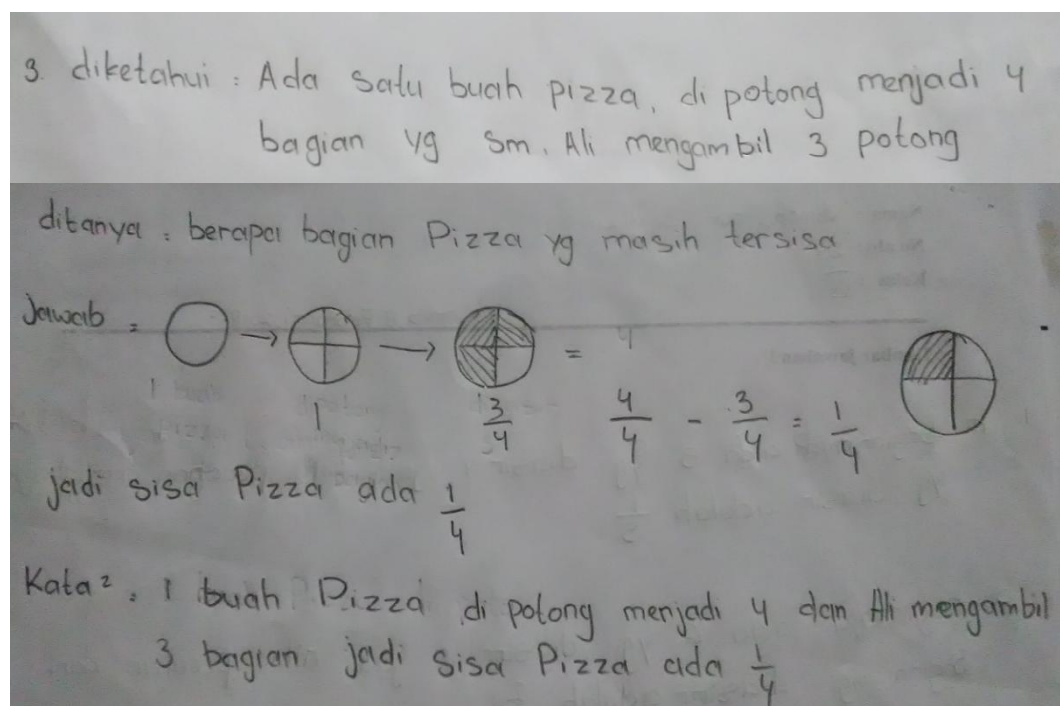 3. diketahui : Ada satu buah pizza, di potong menjadi 4
bagian yg sm. Ali mengambil 3 potong
ditanya : berapa bagian Pizza yg masih tersisa
Jawab = → → =
1 3/4 4/4 - 3/4 = 1/4
jadi sisa Pizza ada 1/4
Kata² : 1 buah Pizza di potong menjadi 4 dan Ali mengambil
3 bagian jadi sisa Pizza ada 1/4